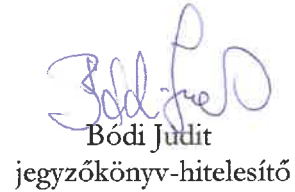 Bódi Judit
jegyzőkönyv-hitelesítő